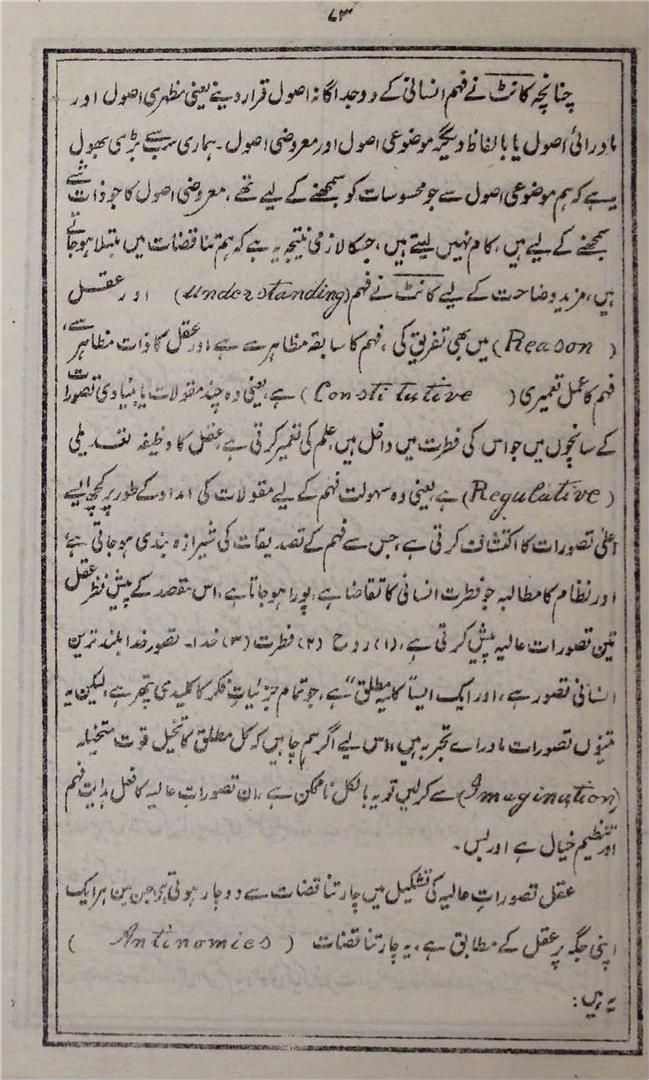 ۷۳
چنانچہ کانٹ نے فہم انسانی کے دو جداگانہ اصول قرار دیئے یعنی مظہری اصول اور
ماورائی اصول یا بالفاظ دیگر موضوعی اصول اور معروضی اصول۔ ہماری سب سے بڑی بھول
یہ ہے کہ ہم موضوعی اصول سے جو محسوسات کو سمجھنے کے لیے تھے، معروضی اصول کا جو ذات شے
سمجھنے کے لیے ہیں، کام نہیں لیتے ہیں، جسکا لازمی نتیجہ یہ ہے کہ ہم تناقضات میں مبتلا ہو جاتے
ہیں، مزید وضاحت کے لیے کانٹ نے فہم (Understanding) اور عقل
(Reason) میں بھی تفریق کی، فہم کا سابقہ مظاہر سے ہے اور عقل کا ذات مظاہر سے،
فہم کا عمل تعمیری (Constitutive) ہے، یعنی وہ چند مقولات یا بنیادی تصورات
کے سانچوں میں جو اس کی فطرت میں داخل ہیں، علم کی تعمیر کرتی ہے، عقل کا وظیفہ تعدیلی
(Regulative) ہے، یعنی وہ سہولت فہم کے لیے مقولات کی امداد کے طور پر کچھ ایسے
اعلیٰ تصورات کا اکتشاف کرتی ہے، جس سے فہم کے تصدیقات کی شیرازہ بندی ہو جاتی ہے،
اور نظام کا مطالبہ جو فطرت انسانی کا تقاضا ہے، پورا ہو جاتا ہے، اس مقصد کے پیش نظر عقل
تین تصورات عالیہ پیش کرتی ہے، (۱) روح (۲) فطرت (۳) خدا۔ تصور خدا بلند ترین
انسانی تصور ہے، اور ایک ایسا "کلیہ مطلق" ہے، جو تمام جزئیاتِ فکر کا کلیدی پتھر ہے، لیکن یہ
تینوں تصورات ماوراے تجربہ ہیں، اس لیے اگر ہم چاہیں کہ کل مطلق کا تخیل قوت متخیلہ
(Imagination) سے کر لیں تو یہ بالکل ناممکن ہے، ان تصوراتِ عالیہ کا فعل ہدایت فہم
اور تنظیم خیال ہے اور بس۔
عقل تصوراتِ عالیہ کی تشکیل میں چار تناقضات سے دوچار ہوتی ہے، جن میں ہر ایک
اپنی جگہ پر عقل کے مطابق ہے، یہ چار تناقضات (Antinomies)
یہ ہیں: